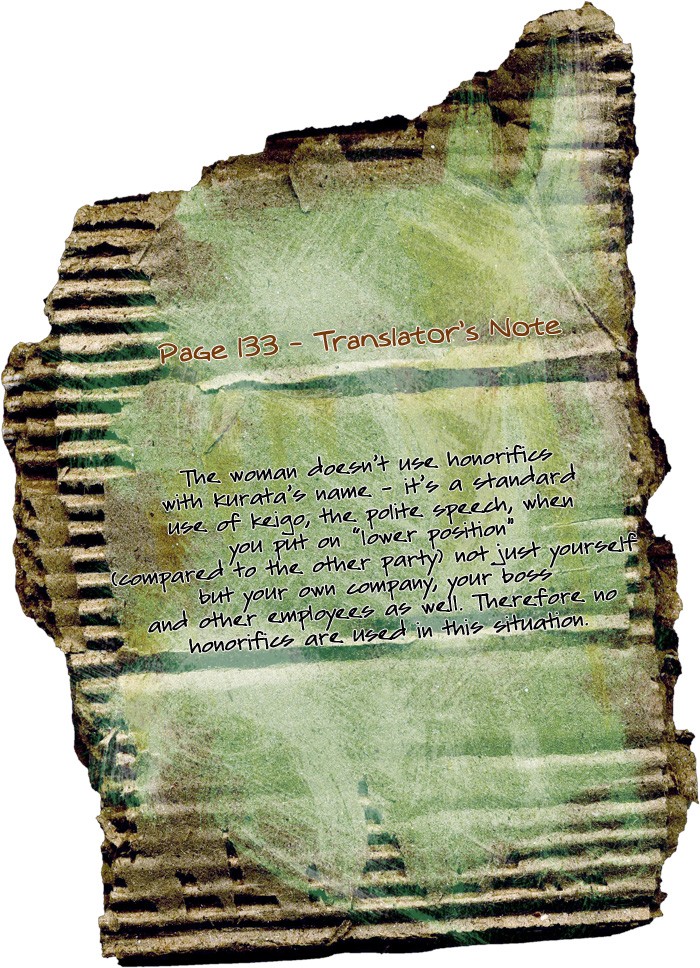 Page 133 - Translator's Note
The woman doesn't use honorifics
with Kurata's name - it's a standard
use of keigo, the polite speech, when
you put on "lower position"
(compared to the other party) not just yourself
but your own company, your boss
and other employees as well. Therefore no
honorifics are used in this situation.